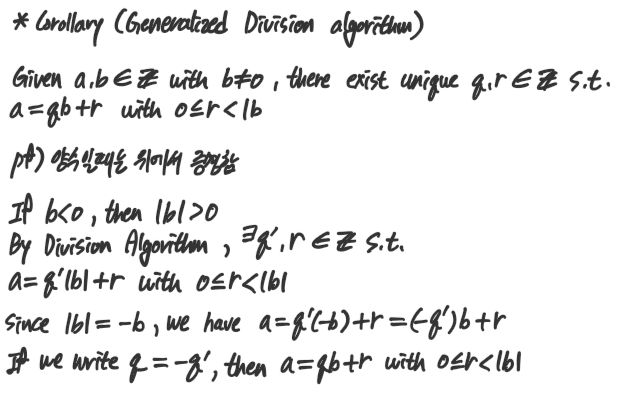 * Corollary (Generalized Division algorithm)
Given a,b ∈ ℤ with b≠0, there exist unique q,r ∈ ℤ s.t.
a=qb+r with 0≤r<|b
pf) 양수일때는 위에서 증명함
If b<0, then |b|>0
By Division Algorithm, ∃q',r ∈ ℤ s.t.
a=q'|b|+r with 0≤r<|b|
Since |b|=-b, we have a=q'(-b)+r=(-q')b+r
If we write q=-q', then a=qb+r with 0≤r<|b|